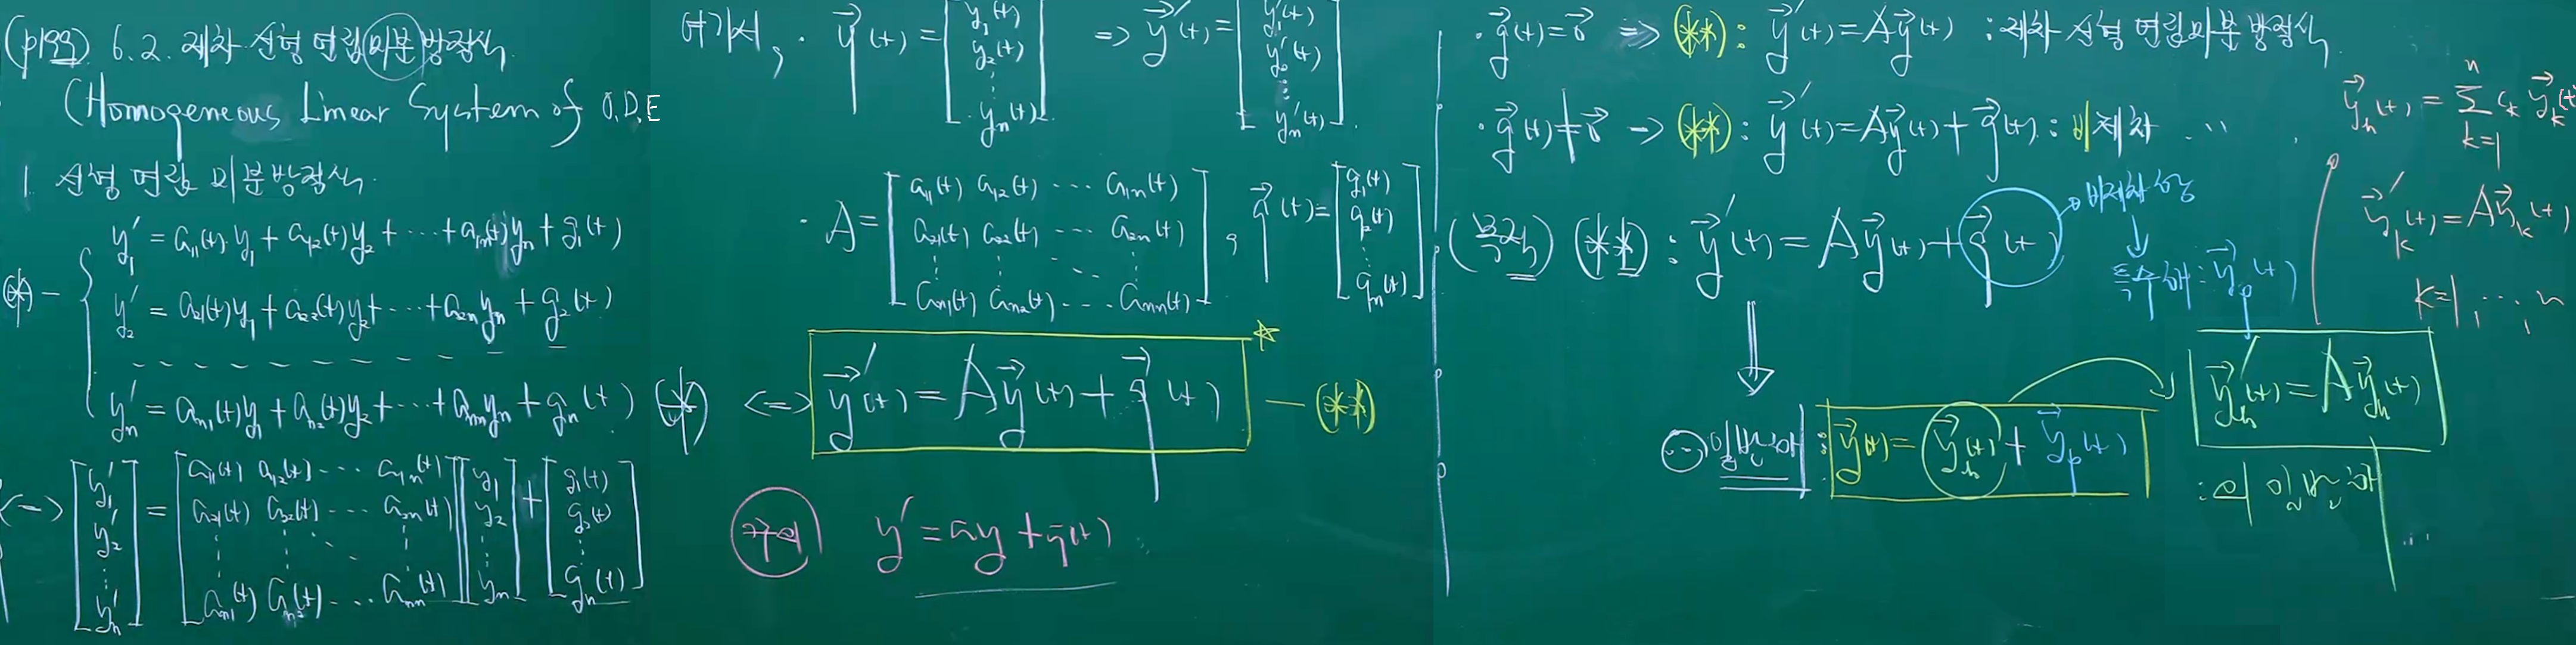 (p199) 6.2. 제차 선형 연립미분방정식
(Homogeneous Linear System of O.D.E
1. 선형 연립 미분방정식
(*) - { y₁' = a₁₁(t)y₁ + a₁₂(t)y₂ + ⋯ + a₁ₙ(t)yₙ + g₁(t)
y₂' = a₂₁(t)y₁ + a₂₂(t)y₂ + ⋯ + a₂ₙyₙ + g₂(t)
- - - - - - - - - -
yₙ' = aₙ₁(t)y₁ + aₙ₂(t)y₂ + ⋯ + aₙₙyₙ + gₙ(t)
<=> [y₁' y₂' ⋮ yₙ'] = [a₁₁(t) a₁₂(t) ⋯ a₁ₙ(t)
a₂₁(t) a₂₂(t) ⋯ a₂ₙ(t)
⋮ ⋮ ⋱ ⋮
aₙ₁(t) aₙ₂(t) ⋯ aₙₙ(t)] [y₁ y₂ ⋮ yₙ] + [g₁(t) g₂(t) ⋮ gₙ(t)]
여기서, · y⃗(t) = [y₁(t) y₂(t) ⋮ yₙ(t)] => y⃗'(t) = [y₁'(t) y₂'(t) ⋮ yₙ'(t)]
· A = [a₁₁(t) a₁₂(t) ⋯ a₁ₙ(t)
a₂₁(t) a₂₂(t) ⋯ a₂ₙ(t)
⋮ ⋮ ⋱ ⋮
aₙ₁(t) aₙ₂(t) ⋯ aₙₙ(t)], g⃗(t) = [g₁(t) g₂(t) ⋮ gₙ(t)]
(*) <=> y⃗'(t) = Ay⃗(t) + g⃗(t) ☆ - (**)
y' = ay + g(t)
· g⃗(t) = 0⃗ => (**): y⃗'(t) = Ay⃗(t) : 제차 선형 연립미분방정식
· g⃗(t) ≠ 0⃗ → (**): y⃗'(t) = Ay⃗(t) + g⃗(t) : 비제차 ‥
(**): y⃗'(t) = Ay⃗(t) + g⃗(t)
비제차항
↓
특수해: y⃗ₚ(t)
⇓
일반해: y⃗(t) = y⃗ₕ(t) + y⃗ₚ(t)
y⃗ₕ'(t) = Ay⃗ₕ(t)
: 의 일반해
y⃗ₕ(t) = Σ_{k=1}^{n} cₖ y⃗ₖ(t)
y⃗ₖ'(t) = Ay⃗ₖ(t)
k=1, ⋯, n